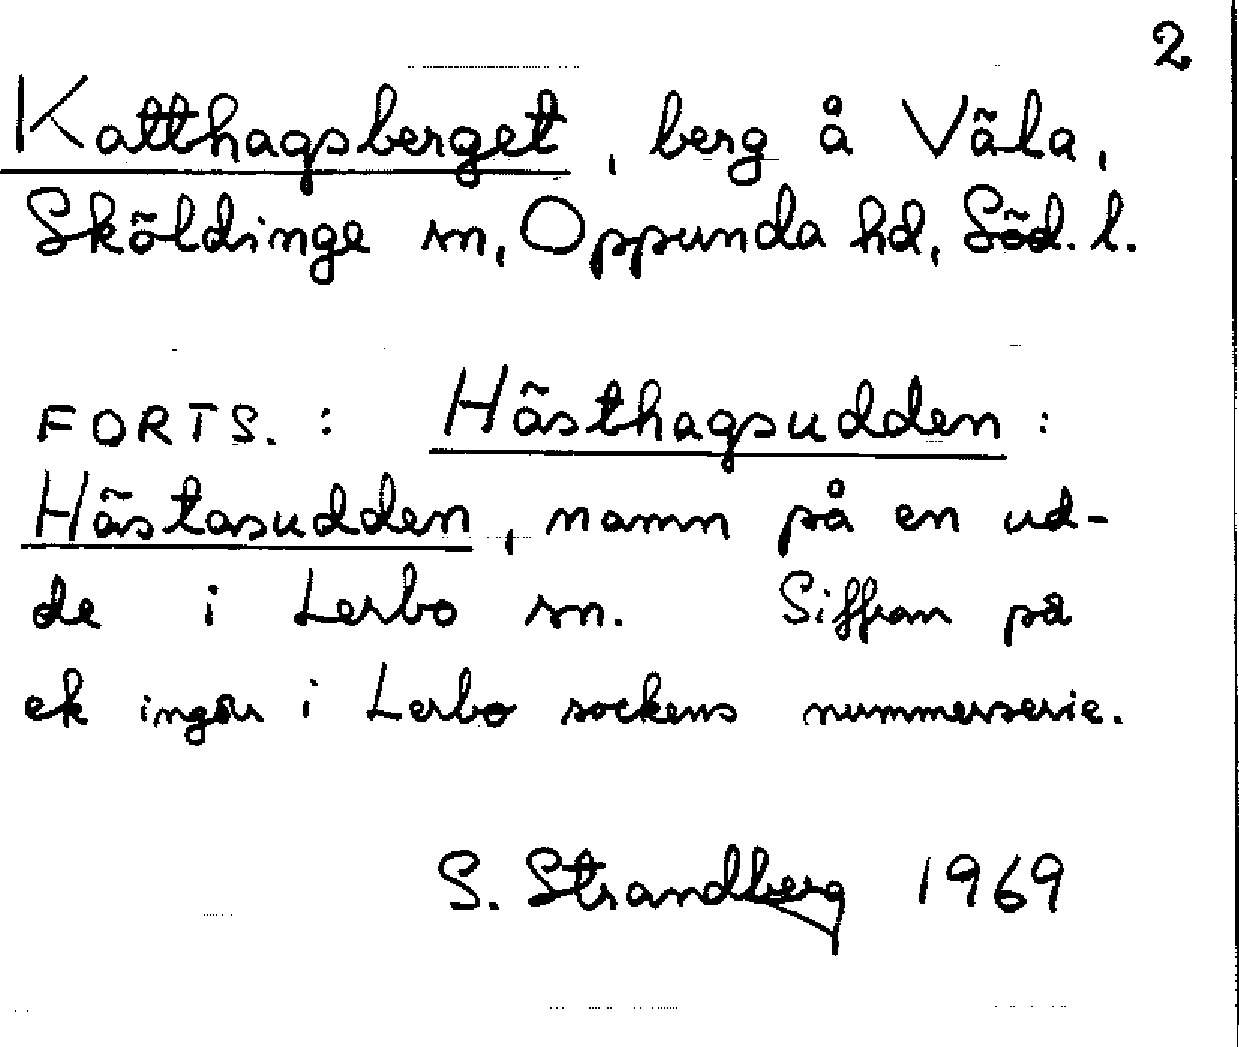 2
Katthagsberget, berg å Väla,
Sköldinge sn, Oppunda hd, Söd. l.
FORTS. : Hästhagsudden :
Hästasudden, namn på en ud-
de i Lerbo sn. Siffran på
ek ingår i Lerbo sockens nummerserie.
S. Strandberg 1969